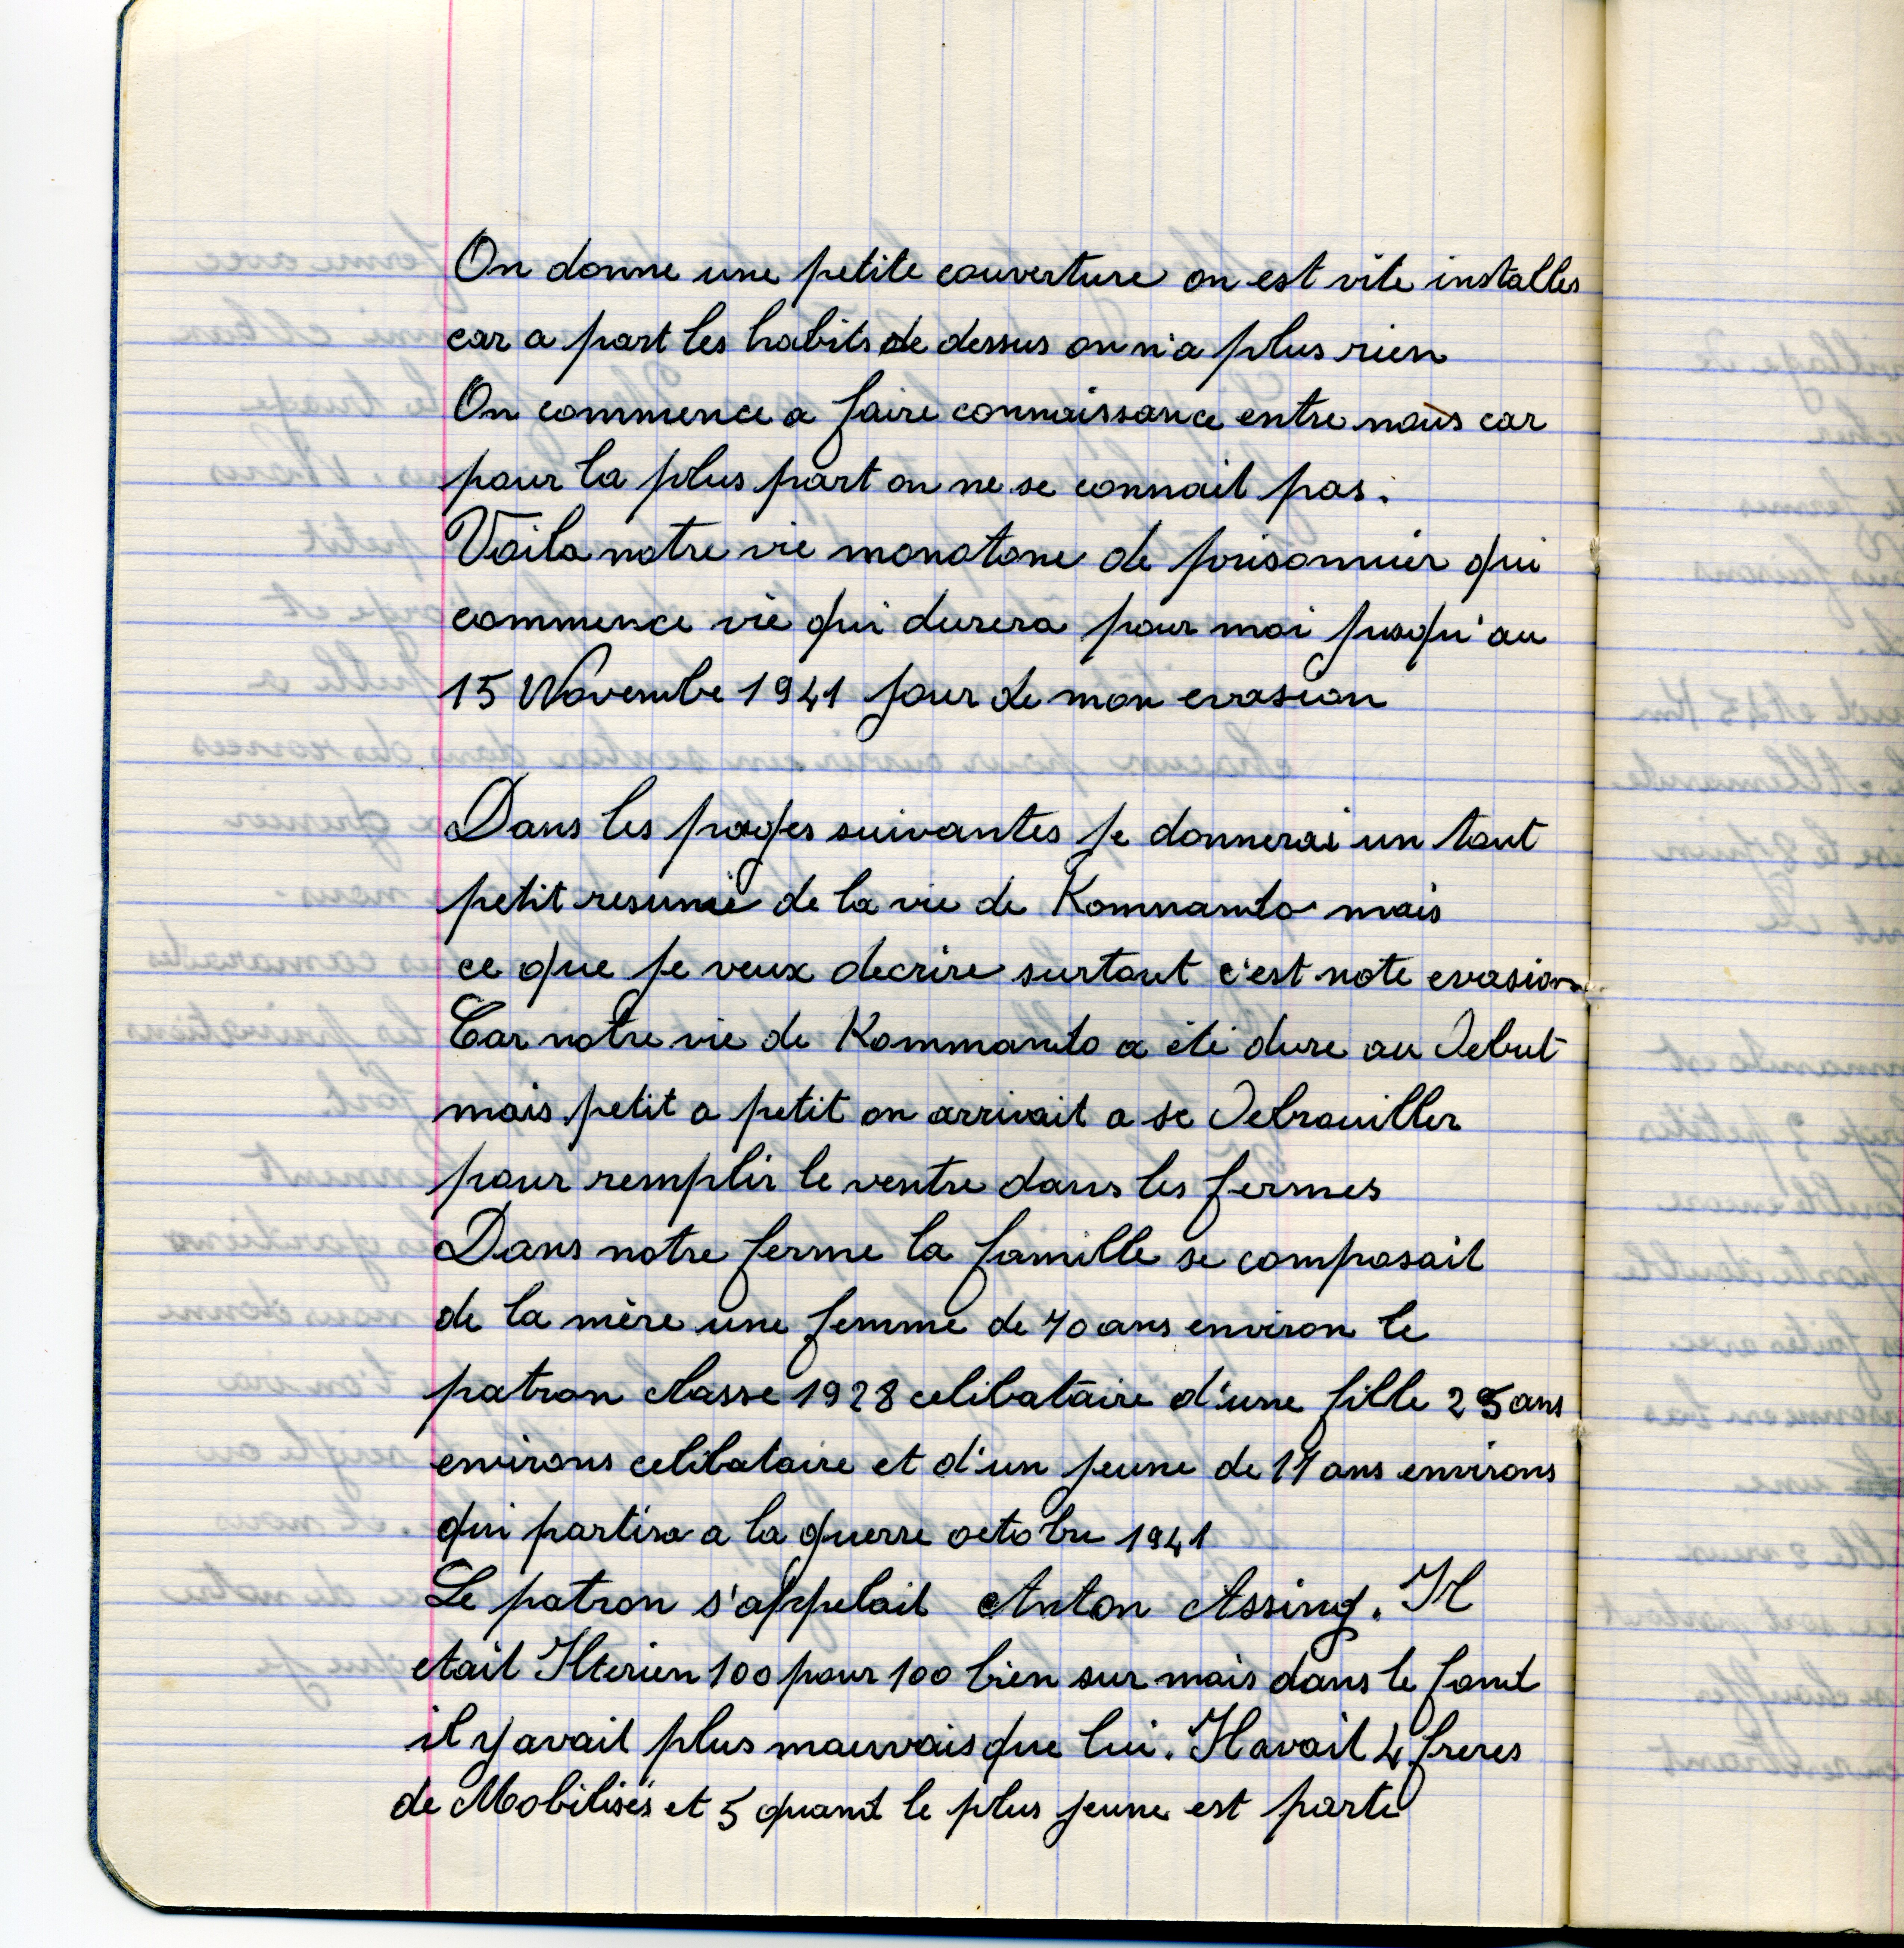 On donne une petite couverture on est vite installes
car a part les habits de dessus on n'a plus rien
On commence a faire connaissance entre nous car
pour la plus part on ne se connait pas.
Voila notre vie monotone de prisonnier qui
commence vie qui durera pour moi jusqu'au
15 Novembre 1941 jour de mon evasion
Dans les pages suivantes je donnerai un tout
petit resumé de la vie de Kommando mais
ce que je veux decrire surtout c'est note evasion
Car notre vie de Kommando a été dure au Debut
mais petit a petit on arrivait a se Debrouiller
pour remplir le ventre dans les fermes
Dans notre ferme la famille se composait
de la mère une femme de 70 ans environ le
patron classe 1928 celibataire d'une fille 25 ans
environs celibataire et d'un jeune de 17 ans environs
qui partira a la guerre octobre 1941
Le patron s'appelait Anton Assing. Il
etait Hterien 100 pour 100 bien sur mais dans le fond
il y avait plus mauvais que lui. Il avait 4 freres
de Mobilisés et 5 quand le plus jeune est parti